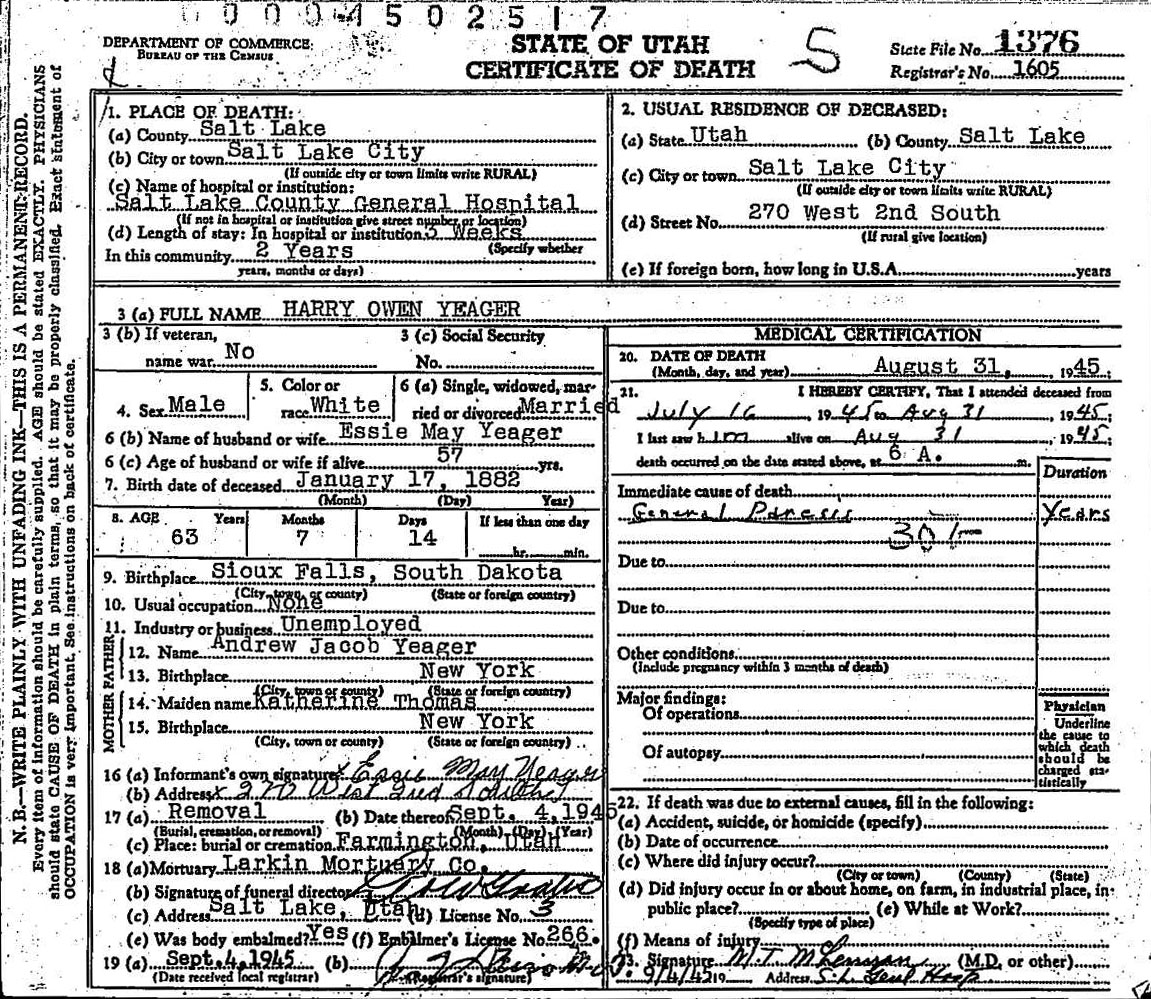 0004502517
DEPARTMENT OF COMMERCE
BUREAU OF THE CENSUS
STATE OF UTAH
CERTIFICATE OF DEATH
S
State File No. 1376
Registrar's No. 1605
N. B.—WRITE PLAINLY WITH UNFADING INK—THIS IS A PERMANENT RECORD.
Every item of information should be carefully supplied. AGE should be stated EXACTLY. PHYSICIANS
should state CAUSE OF DEATH in plain terms, so that it may be properly classified. Exact statement of
OCCUPATION is very important. See instructions on back of certificate.
1. PLACE OF DEATH:
(a) County Salt Lake
(b) City or town Salt Lake City
(If outside city or town limits write RURAL)
(c) Name of hospital or institution:
Salt Lake County General Hospital
(If not in hospital or institution give street number or location)
(d) Length of stay: In hospital or institution Weeks
(Specify whether
In this community 2 Years
years, months or days)
2. USUAL RESIDENCE OF DECEASED:
(a) State Utah (b) County Salt Lake
(c) City or town Salt Lake City
(If outside city or town limits write RURAL)
(d) Street No. 270 West 2nd South
(If rural give location)
(e) If foreign born, how long in U.S.A. years
3 (a) FULL NAME HARRY OWEN YEAGER
3 (b) If veteran, 3 (c) Social Security
name war No No.
4. Sex Male 5. Color or race White 6 (a) Single, widowed, married or divorced Married
6 (b) Name of husband or wife Essie May Yeager
6 (c) Age of husband or wife if alive 57 yrs.
7. Birth date of deceased January 17, 1882
(Month) (Day) Year)
8. AGE Years Months Days If less than one day
63 7 14 hr. min.
9. Birthplace Sioux Falls, South Dakota
(City, town, or county) (State or foreign country)
10. Usual occupation None
11. Industry or business Unemployed
FATHER
12. Name Andrew Jacob Yeager
13. Birthplace New York
(City, town or county) (State or foreign country)
MOTHER
14. Maiden name Katherine Thomas
15. Birthplace New York
(City, town or county) (State or foreign country)
16 (a) Informant's own signature x Essie May Yeager
(b) Address x 270 West 2nd South
17 (a) Removal (b) Date thereof Sept. 4, 1945
(Burial, cremation, or removal) (Month) (Day) (Year)
(c) Place: burial or cremation Farmington, Utah
18 (a) Mortuary Larkin Mortuary Co.
(b) Signature of funeral director
(c) Address Salt Lake, Utah (d) License No. 3
(e) Was body embalmed? Yes (f) Embalmer's License No. 266.
19 (a) Sept. 4, 1945 (b)
(Date received local registrar) (Registrar's signature)
MEDICAL CERTIFICATION
20. DATE OF DEATH
(Month, day, and year) August 31, 1945;
21. I HEREBY CERTIFY, That I attended deceased from
July 16, 1945 to Aug 31, 1945;
I last saw him alive on Aug 31, 1945;
death occurred on the date stated above, at 6 A. m.
Duration
Immediate cause of death
General Paresis Years
30
Due to
Due to
Other conditions
(Include pregnancy within 3 months of death)
Major findings:
Of operations
Of autopsy
Physician
Underline
the cause to
which death
should be
charged sta-
tistically
22. If death was due to external causes, fill in the following:
(a) Accident, suicide, or homicide (specify)
(b) Date of occurrence
(c) Where did injury occur?
(City or town) (County) (State)
(d) Did injury occur in or about home, on farm, in industrial place, in
public place? (e) While at Work?
(Specify type of place)
(f) Means of injury
23. Signature M. T. (M.D. or other)
9/4/45 19 Address S. L. Genl Hosp